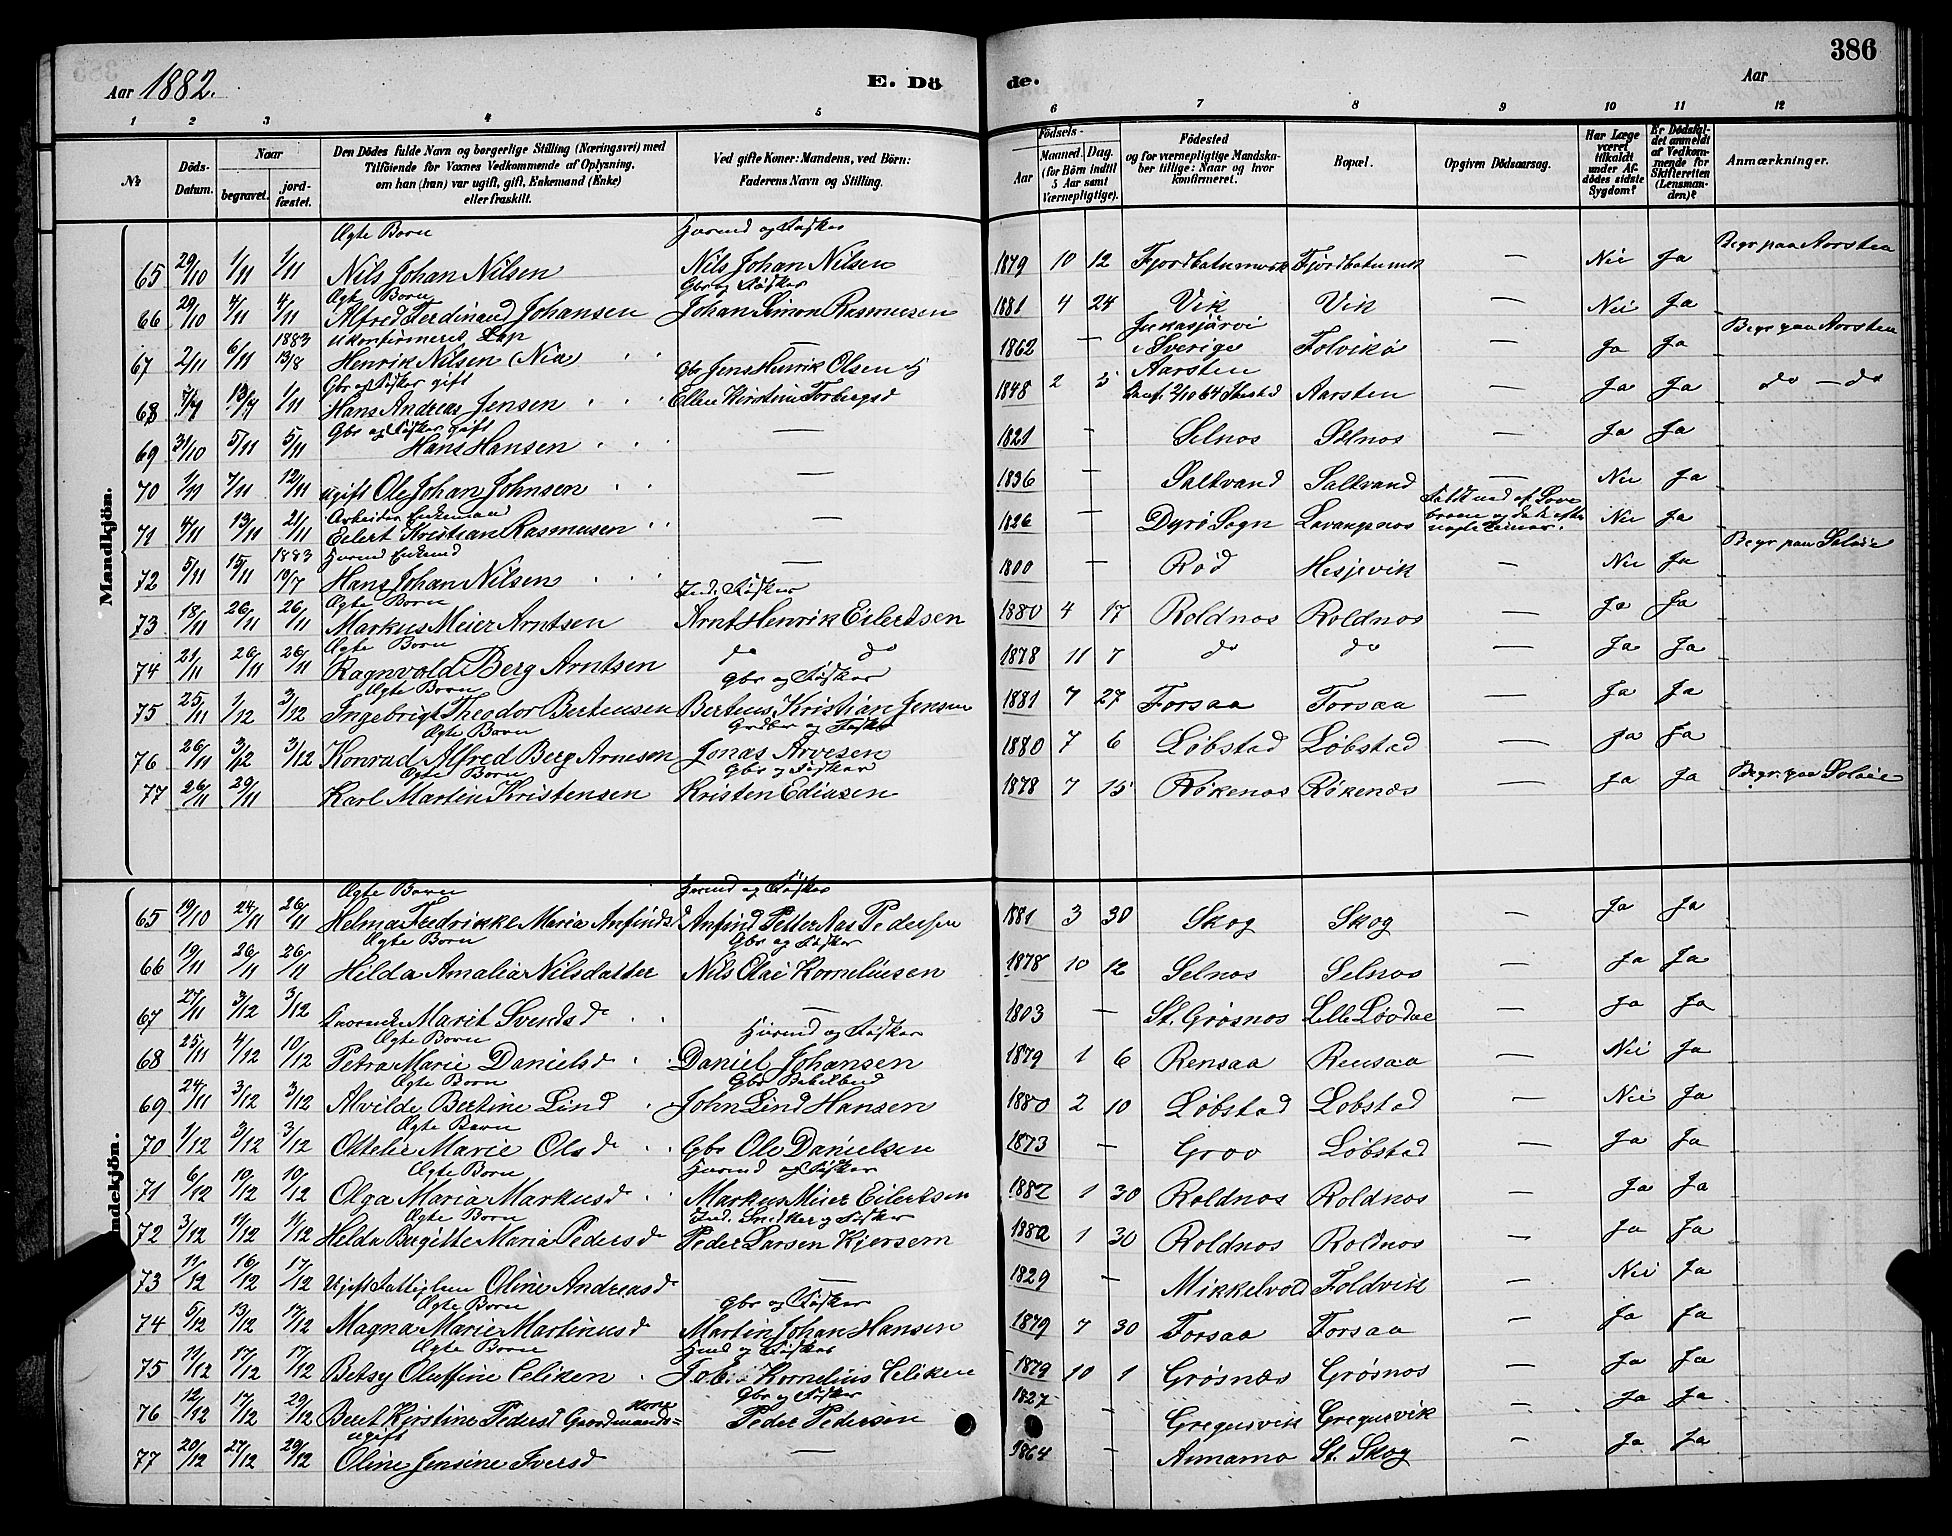 386
Aar 1882.
E. Dö
de.
Aar
1 2 3 4 5 6 7 8 9 10 11 12
№
Döds-Datum.
Naar
begravet.
jord-fæstet.
Den Dödes fulde Navn og borgerlige Stilling (Næringsvei) med
Tilföiende for Voxnes Vedkommende af Oplysning,
om han (hun) var ugift, gift, Enkemand (Enke)
eller fraskilt.
Ved gifte Koner: Mandens, ved Börn:
Faderens Navn og Stilling.
Födsels-
Aar
Maaned. Dag.
(for Börn indtil
5 Aar samt
Værnepligtige).
Födested
og for værnepligtige Mandska-
ber tillige: Naar og hvor
konfirmeret.
Bopæl.
Opgiven Dödsaarsag.
Har Læge
været
tilkaldt
under Af-
dödes sidste
Sygdom?
Er Dödsfal-
det anmeldt
af Vedkom-
mende for
Skifteretten
(Lensman-
den)?
Anmærkninger.
Mandkjön.
Ægte Barn Huusmd og Fisker
65 29/10 1/11 1/11 Nils Johan Nilsen Nils Johan Nilsen 1879 10 12 — Nei Ja Begr paa Aarsten
Ægte Barn Gbr og Fisker
66 29/10 4/11 4/11 Alfred Ferdinand Johansen Johan Simon Rasmusen 1881 4 24 Vik Vik — Nei Ja
ukonfirmeret Lap
67 2/11 6/11 1883 13/8 Henrik Nilsen (Nia) — 1862 — Jukasjärvi i Sverige Folvikø — Ja Ja Begr paa Aarsten
Gbr og Fisker gift
68 13/9 1/11 Hans Andreas Jensen Gbr Jens Henrik Olsen og Ellen Kirstine Torbergsd 1848 2 5 Aarsten Aarsten — Ja Ja do — do
Gbr og Fisker gift
69 31/10 5/11 5/11 Hans Hansen — 1821 — Selnos Selnos — Ja Ja
70 1/11 7/11 12/11 ugift Ole Johan Johnsen — 1836 — Saltvand Saltvand — Nei Ja
Arbeider Enkemand
71 4/11 13/11 21/11 Eilert Kristian Rasmusen — 1826 — Dyrö Sogn Lavangnos Nei Ja
72 5/11 15/11 1883 19/7 Hans Johan Nilsen — 1800 — Rød Hesjevik — Nei Ja Begr paa Soløie
Ægte Barn Fisker
73 18/11 26/11 26/11 Markus Meier Arntsen Arnt Henrik Eilertsen 1880 4 17 Roldnos Roldnos — Ja Ja
Ægte Barn
74 21/11 26/11 26/11 Ragnvald Berg Arntsen do do 1878 11 7 do do — Ja Ja
Ægte Barn Gbr og Fisker
75 25/11 1/12 3/12 Ingebrigt Theodor Bertensen Bertens Kristian Jensen 1881 7 27 Forsaa Forsaa — Ja Ja
Ægte Barn Grdbr og Fisker
76 26/11 3/12 3/12 Konrad Alfred Berg Arnesen Jonas Arvesen 1880 7 6 Løbstad Løbstad — Ja Ja
Ægte Barn Gbr og Fisker
77 26/11 29/11 Karl Martin Kristensen Kristen Ediasen 1878 7 15 Røkenos Røkenes — Ja Ja Begr. paa Soløie
ndekjön.
Ægte Barn Huusmd og Fisker
65 19/10 24/11 26/11 Helma Fredrikke Maria Anfindsd Anfind Petter Aas Pedersen 1881 3 30 Skog Skog — Ja Ja
Ægte Barn Gbr og Fisker
66 19/11 26/11 26/11 Hilda Amalia Nilsdatter Nils Olai Korneliusen 1878 10 12 Selnos Selnos — Ja Ja
67 27/11 3/12 3/12 Marit Svendsd — 1803 — St. Grøsnos Lille Løvdal — Ja Ja
Ægte Barn Huusmd og Fisker
68 25/11 4/12 10/12 Petra Marie Danielsd Daniel Johansen 1879 1 6 Rensaa Rensaa — Nei Ja
Ægte Barn Gbr
69 24/11 3/12 3/12 Alvilde Bertine Lind John Lind Hansen 1880 2 10 Løbstad Løbstad — Nei Ja
Ægte Barn
70 1/12 3/12 3/12 Ottelie Marie Olsd Gbr Ole Danielsen 1873 — Grov Løbstad — Ja Ja
Ægte Barn Huusmd og Fisker
71 6/12 10/12 10/12 Olga Maria Markusd Markus Meier Eilertsen 1882 1 30 Roldnos Roldnos — Ja Ja
Ægte Barn Ind. Snedker og Fisker
72 3/12 11/12 11/12 Helda Birgitte Maria Pedersd Peder Larsen Kjersem 1882 1 30 Roldnos Roldnos — Ja Ja
73 11/12 16/12 17/12 Ugift Fattiglem Oline Andreasd — 1829 — Mikkelvold Foldvik — Nei Ja
Ægte Barn Gbr og Fisker
74 5/12 13/12 17/12 Magna Marie Martinusd Martin Johan Hansen 1879 7 30 Forsaa Forsaa — Ja Ja
Ægte Barn Hmd og Fisker
75 11/12 17/12 17/12 Betsy Oluffine Celiken Kornelius Celiken 1879 10 1 Grøsnæs Grøsnos — Ja Ja
Gbr og Fisker
76 12/12 17/12 29/12 Beret Kirstine Pedersd Gaardmands- Kone Peder Pedersen 1827 — Gregusvik Gregusvik — Ja Ja
ugift
77 20/12 27/12 29/12 Oline Jensine Iversd — 1864 — Annamo St. Skog — Ja Ja